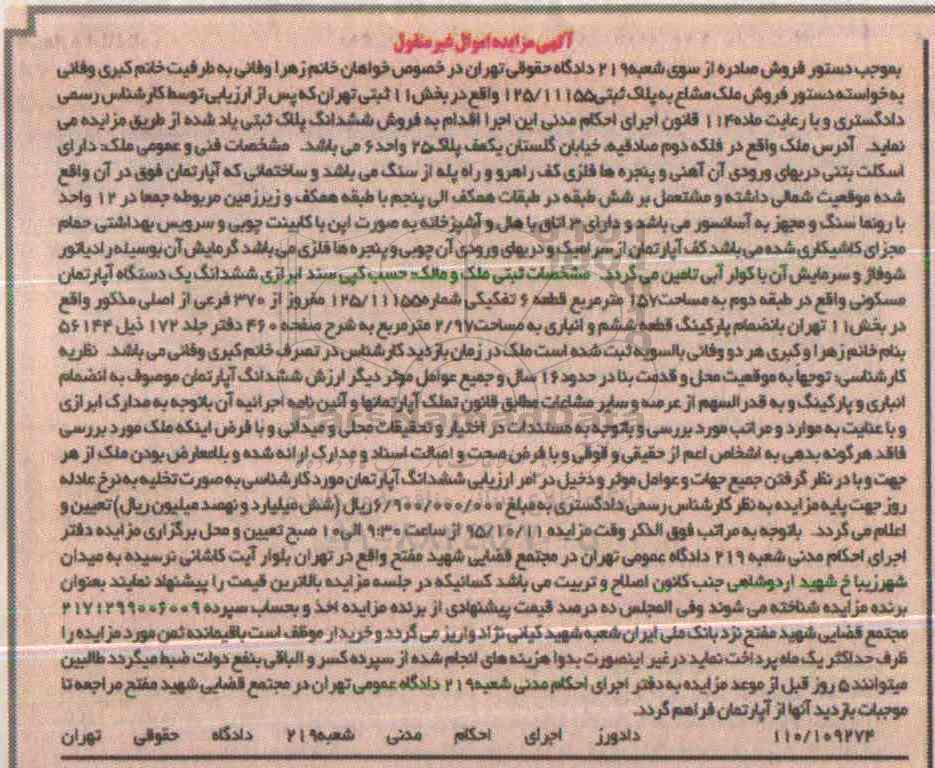 آگهی مزایده اموال غیر منقول
بموجب دستور فروش صادره از سوی شعبه ۲۱۹ دادگاه حقوقی تهران در خصوص خواهان خانم زهرا وفائی به طرفیت خانم کبری وفائی
به خواسته دستور فروش ملک مشاع به پلاک ثبتی ۱۲۵/۱۱۱۵۵ واقع در بخش ۱۱ ثبتی تهران که پس از ارزیابی توسط کارشناس رسمی
دادگستری و با رعایت ماده ۱۱۴ قانون اجرای احکام مدنی این اجرا اقدام به فروش ششدانگ پلاک ثبتی یاد شده از طریق مزایده می
نماید. آدرس ملک واقع در فلکه دوم صادقیه، خیابان گلستان یکم پلاک ۲۵ واحد ۶ می باشد. مشخصات فنی و عمومی ملک: دارای
اسکلت بتنی دربهای ورودی آن آهنی و پنجره ها فلزی کف راهرو و راه پله از سنگ می باشد و ساختمانی که آپارتمان فوق در آن واقع
شده موقعیت شمالی داشته و مشتمل بر شش طبقه در طبقات همکف الی پنجم با طبقه همکف و زیرزمین مربوطه جمعا در ۱۲ واحد
با رونما سنگ و مجهز به آسانسور می باشد و دارای ۳ اتاق با هال و آشپزخانه به صورت اپن با کابینت چوبی و سرویس بهداشتی حمام
مجزای کاشیکاری شده می باشد کف آپارتمان از سرامیک و دربهای ورودی آن چوبی و پنجره ها فلزی می باشد گرمایش آن بوسیله رادیاتور
شوفاژ و سرمایش آن با کولر آبی تامین می گردد. مشخصات ثبتی ملک و مالک: حسب کپی سند ابرازی ششدانگ یک دستگاه آپارتمان
مسکونی واقع در طبقه دوم به مساحت ۱۵۷ مترمربع قطعه ۶ تفکیکی شماره ۱۲۵/۱۱۱۵۵ مفروز از ۳۷۰ فرعی از اصلی مذکور واقع
در بخش ۱۱ تهران بانضمام پارکینگ قطعه ششم و انباری به مساحت ۲/۹۷ مترمربع به شرح صفحه ۴۶۰ دفتر جلد ۱۷۲ ذیل ۵۶۱۴۴
بنام خانم زهرا و کبری هر دو وفائی بالسویه ثبت شده است ملک در زمان بازدید کارشناس در تصرف خانم کبری وفائی می باشد. نظریه
کارشناسی: توجها به موقعیت محل و قدمت بنا در حدود ۱۶ سال و جمیع عوامل موثر دیگر ارزش ششدانگ آپارتمان موصوف به انضمام
انباری و پارکینگ و به قدرالسهم از عرصه و سایر مشاعات مطابق قانون تملک آپارتمانها و آئین نامه اجرائیه آن باتوجه به مدارک ابرازی
و با عنایت به موارد و مراتب مورد بررسی و باتوجه به مستندات در اختیار و تحقیقات محلی و میدانی و با فرض اینکه ملک مورد بررسی
فاقد هرگونه بدهی به اشخاص اعم از حقیقی و حقوقی و با فرض صحت و اصالت اسناد و مدارک ارائه شده و بلامعارض بودن ملک از هر
جهت و با در نظر گرفتن جمیع جهات و عوامل موثر و دخیل در امر ارزیابی ششدانگ آپارتمان مورد کارشناسی به صورت تخلیه به نرخ عادله
روز جهت پایه مزایده به نظر کارشناس رسمی دادگستری به مبلغ ۶/۹۰۰/۰۰۰/۰۰۰ ریال (شش میلیارد و نهصد میلیون ریال) تعیین و
اعلام می گردد. باتوجه به مراتب فوق الذکر وقت مزایده ۹۵/۱۰/۱۱ از ساعت ۹:۳۰ الی ۱۰ صبح تعیین و محل برگزاری مزایده دفتر
اجرای احکام مدنی شعبه ۲۱۹ دادگاه عمومی تهران در مجتمع قضایی شهید مفتح واقع در تهران بلوار آیت کاشانی نرسیده به میدان
شهرزیبا خ شهید اردوشاهی جنب کانون اصلاح و تربیت می باشد کسانیکه در جلسه مزایده بالاترین قیمت را پیشنهاد نمایند بعنوان
برنده مزایده شناخته می شوند وفی المجلس ده درصد قیمت پیشنهادی از برنده مزایده اخذ و بحساب سپرده ۲۱۷۱۲۹۹۰۰۶۰۰۹
مجتمع قضایی شهید مفتح نزد بانک ملی ایران شعبه شهید کیانی نژاد واریز می گردد و خریدار موظف است باقیمانده ثمن مورد مزایده را
ظرف حداکثر یک ماه پرداخت نماید در غیر اینصورت بدوا هزینه های انجام شده از سپرده کسر و الباقی بنفع دولت ضبط میگردد طالبین
میتوانند ۵ روز قبل از موعد مزایده به دفتر اجرای احکام مدنی شعبه ۲۱۹ دادگاه عمومی تهران در مجتمع قضایی شهید مفتح مراجعه تا
موجبات بازدید آنها از آپارتمان فراهم گردد.
۱۱۰/۱۰۹۲۷۴ دادورز اجرای احکام مدنی شعبه ۲۱۹ دادگاه حقوقی تهران